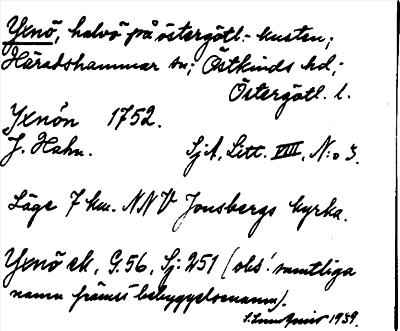 Yxnö, halvö på östergötl.-kusten;
Häradshammar sn; Östkinds hd;
Östergötl. l.
Yxnön 1752.
J. Hahn. SjA, Litt. VIII, N:o 3.
Läge 7 km. NNV Jonsbergs kyrka.
Yxnö ek, G.56, Sj: 251 (obs! samtliga
namn främst bebyggelsenamn).
1939.